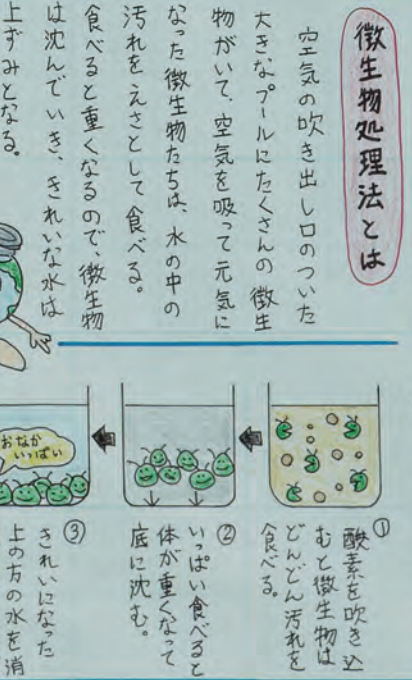 微生物処理法とは
空気の吹き出し口のついた
大きなプールにたくさんの微生
物がいて、空気を吸って元気に
なった微生物たちは、水の中の
汚れをえさとして食べる。
食べると重くなるので、微生物
は沈んでいき、きれいな水は
上ずみとなる。
①
酸素を吹き込
むと微生物は
どんどん汚れを
食べる。
②
いっぱい食べると
体が重くなって
底に沈む。
おなか
いっぱい
③
きれいになった
上の方の水を消